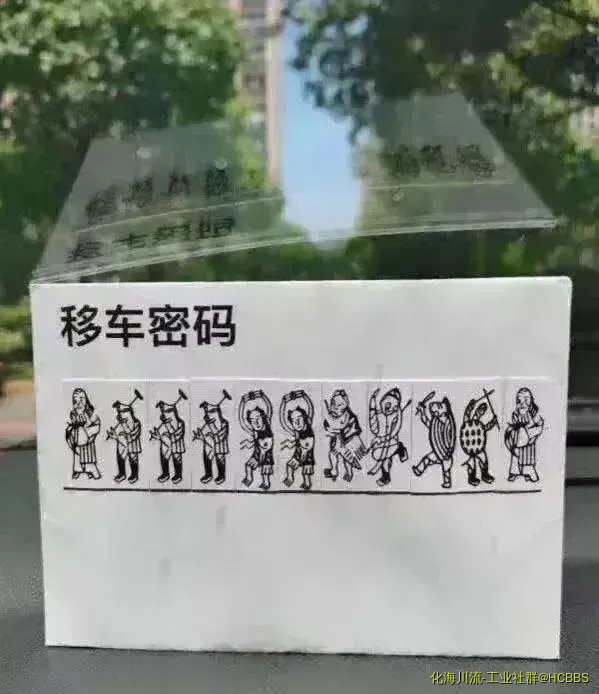 移车密码
化海川流-工业社群@HCBBS